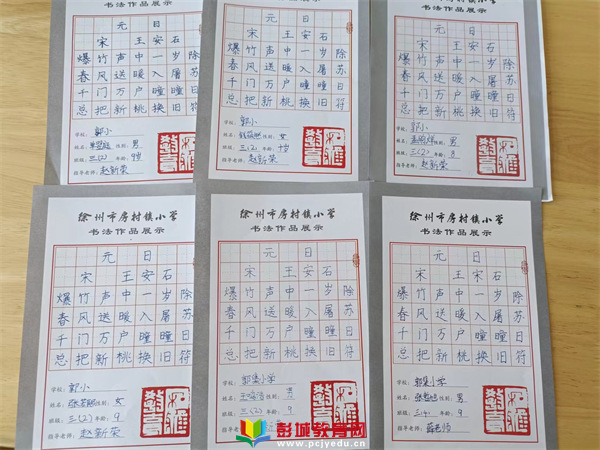 书法作品展示
元 日
宋 王安石
爆竹声中一岁除
春风送暖入屠苏
千门万户瞳瞳日
总把新桃换旧符
学校：郭小
姓名： 性别：男
班级：三(2) 年龄：9岁
指导老师：赵新荣
书法作品展示
元 日
宋 王安石
爆竹声中一岁除
春风送暖入屠苏
千门万户瞳瞳日
总把新桃换旧符
学校：郭小
姓名： 性别：女
班级：三(2) 年龄：
指导老师：赵新荣
书法作品展示
元 日
宋 王安石
爆竹声中一岁除
春风送暖入屠苏
千门万户瞳瞳日
总把新桃换旧符
学校：郭小
姓名： 性别：男
班级：三(2) 年龄：8
指导老师：赵新荣
徐州市房村镇小学
书法作品展示
元 日
宋 王安石
爆竹声中一岁除
春风送暖入屠苏
千门万户瞳瞳日
总把新桃换旧符
学校：郭小
姓名： 性别：女
班级：三(2) 年龄：9
指导老师：赵新荣
徐州市房村镇小学
书法作品展示
元 日
宋 王安石
爆竹声中一岁除
春风送暖入屠苏
千门万户瞳瞳日
总把新桃换旧符
学校：郭集小学
姓名： 性别：男
班级：三(2) 年龄：9
指导老师：
徐州市房村镇小学
书法作品展示
元 日
宋 王宋石
爆竹声中一岁除
春风送暖入屠苏
千门万户瞳瞳日
总把新桃换旧符
学校：郭集小学
姓名： 性别：男
班级：三(4) 年龄：9
指导老师：薛老师
彭城教育网
www.pcjyedu.cn